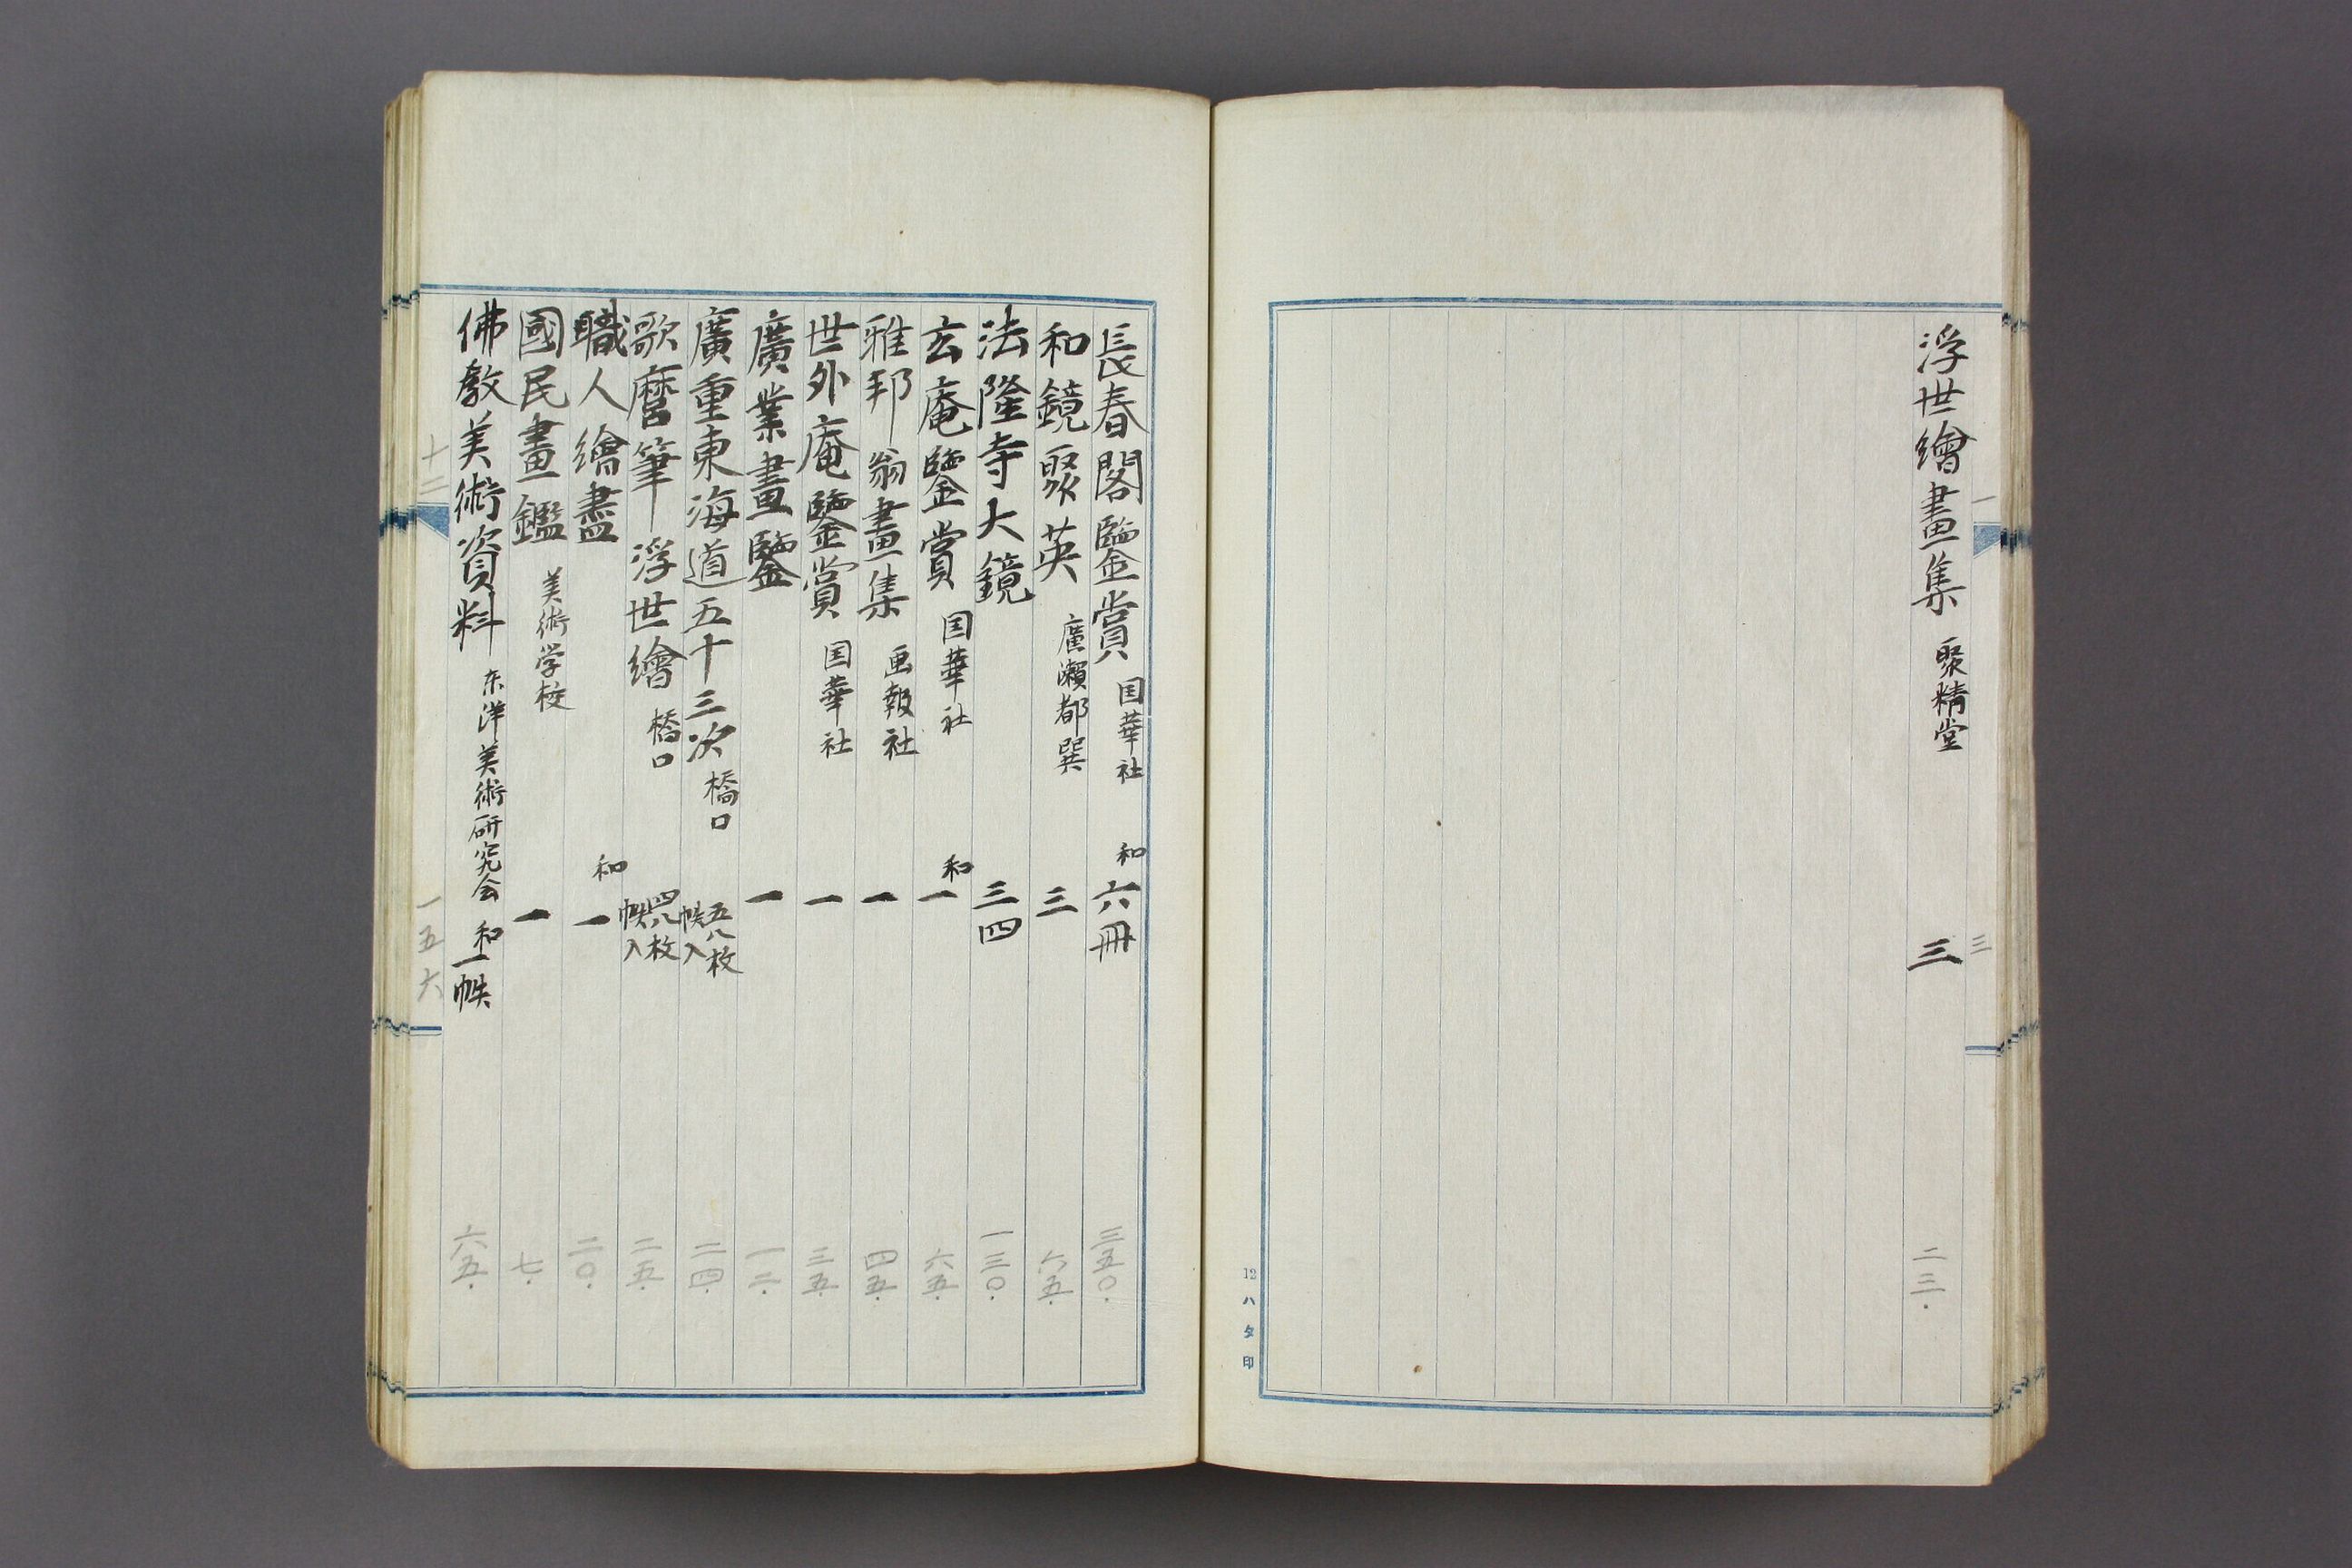 一
三
浮世繪畫集 聚精堂 三 二三.
12ハタ印
長春閣鑒賞 国華社 和 六冊 三五〇.
和鏡聚英 廣瀬都巽 三 六五.
法隆寺大鏡 三四 一三〇.
玄庵鑒賞 国華社 和一 六五.
雅邦翁畫集 画報社 一 四五.
世外庵鑒賞 国華社 一 三五.
廣業畫鑒 一 一二.
廣重東海道五十三次 橋口 五八枚 帙入 二四.
歌麿筆浮世繪 橋口 四八枚 帙入 二五.
職人繪盡 和一 二〇.
國民畫鑑 美術学校 一 七.
佛教美術資料 东洋美術研究会 和一帙 六五.
十二
一五六